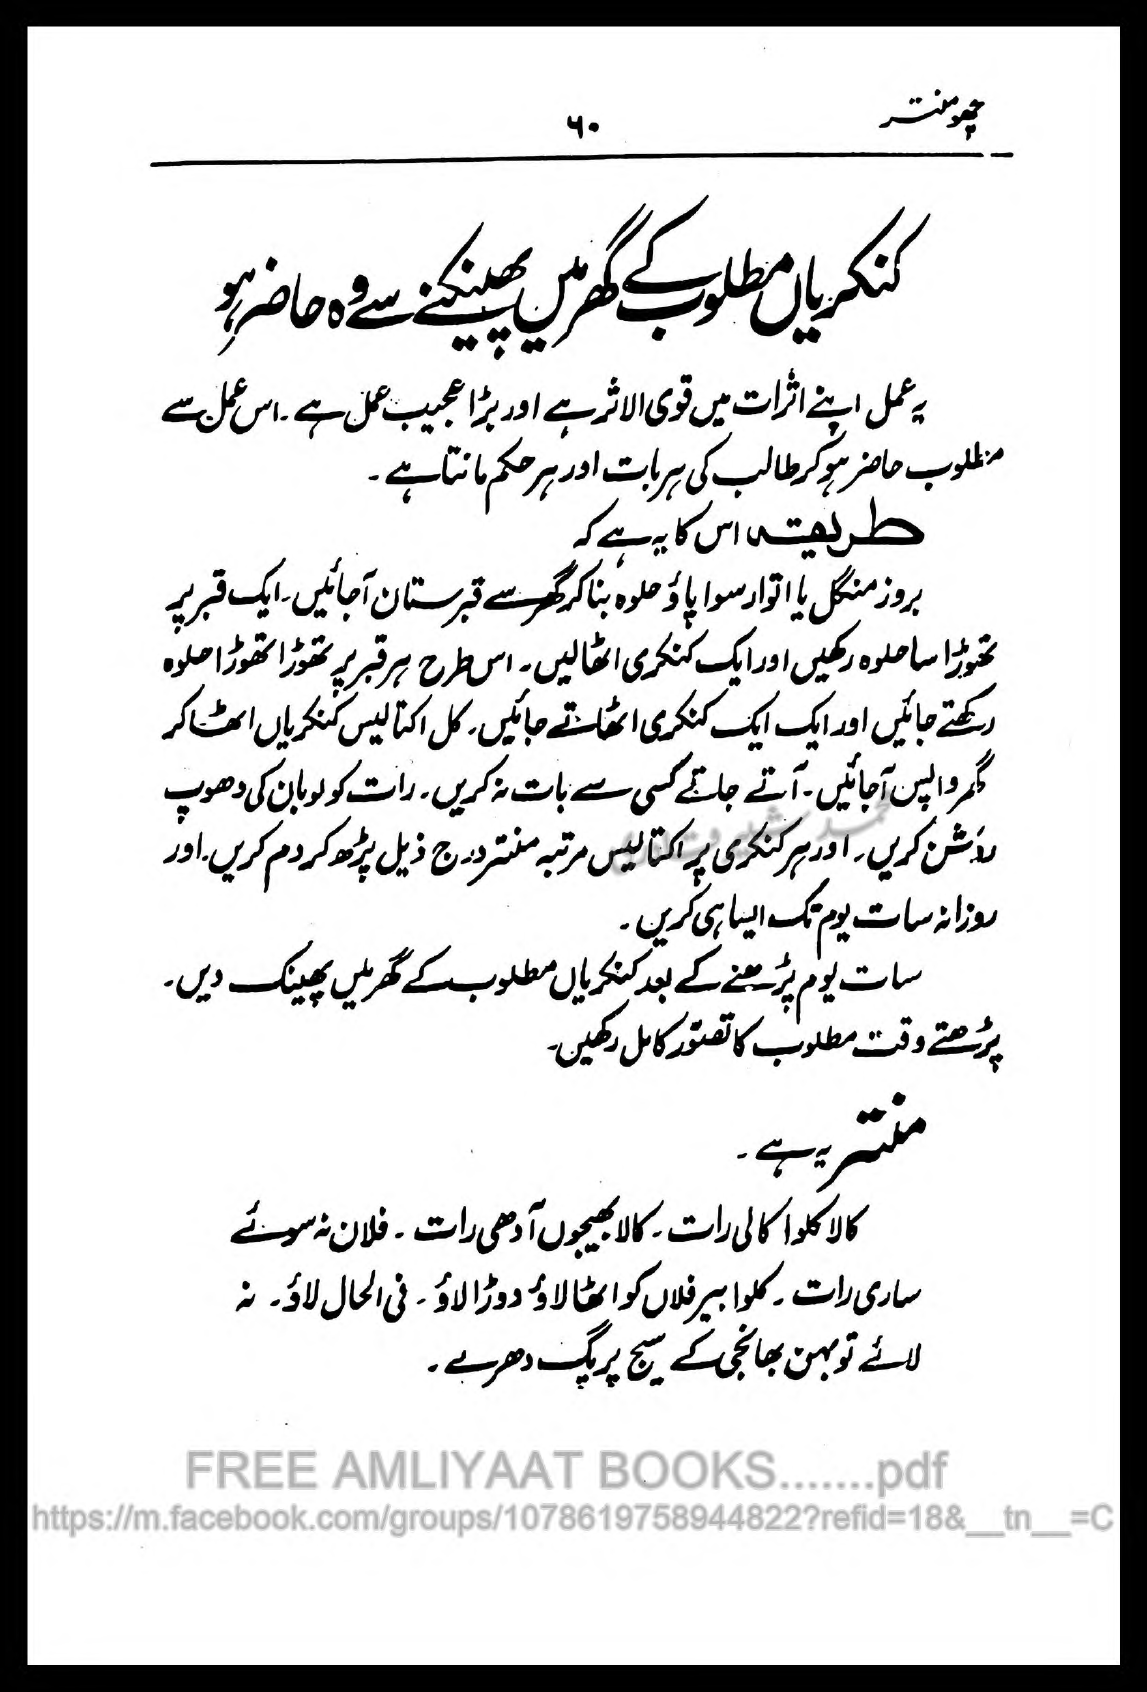 چھومنتر
۶۰
کنکریاں مطلوب کے گھر میں پھینکنے سے وہ حاضر ہو
یہ عمل اپنے اثرات میں قوی الاثر ہے اور بڑا عجیب عمل ہے۔ اس عمل سے
مطلوب حاضر ہو کر طالب کی ہر بات اور ہر حکم مانتا ہے۔
طریقہ اس کا یہ ہے کہ
بروز منگل یا اتوار سوا پاؤ حلوہ بنا کر گھر سے قبرستان آجائیں۔ ایک قبر پر
تھوڑا سا حلوہ رکھیں اور ایک کنکری اٹھالیں۔ اس طرح ہر قبر پر تھوڑا تھوڑا حلوہ
رکھتے جائیں اور ایک ایک کنکری اٹھاتے جائیں۔ کل اکتالیس کنکریاں اٹھا کر
گھر واپس آجائیں۔ آتے جاتے کسی سے بات نہ کریں۔ رات کو لوبان کی دھوپ
روشن کریں۔ اور ہر کنکری پر اکتالیس مرتبہ منتر درج ذیل پڑھ کر دم کریں۔ اور
روزانہ سات یوم تک ایسا ہی کریں۔
سات یوم پڑھنے کے بعد کنکریاں مطلوب کے گھر میں پھینک دیں۔
پڑھتے وقت مطلوب کا تصوّر کامل رکھیں۔
منتر یہ ہے۔
کالا کلوا کالی رات۔ کالا بھیجوں آدھی رات۔ فلان نہ سوئے
ساری رات۔ کلوا بیر فلاں کو اٹھا لاؤ دوڑا لاؤ۔ فی الحال لاؤ۔ نہ
لائے تو بہن بھانجی کے سیج پر پگ دھرے۔
FREE AMLIYAAT BOOKS.......pdf
https://m.facebook.com/groups/1078619758944822?refid=18&__tn__=C